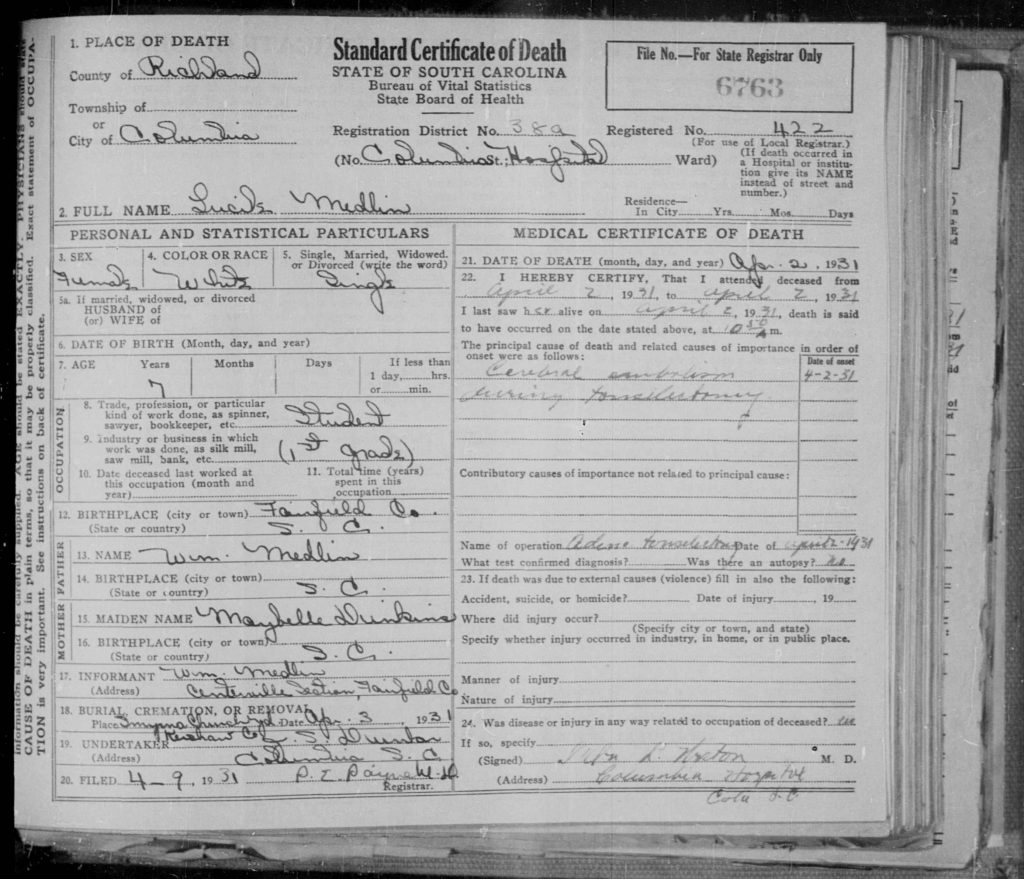 Information should be carefully supplied. AGE should be stated EXACTLY. PHYSICIANS should state
CAUSE OF DEATH in plain terms, so that it may be properly classified. Exact statement of OCCUPA-
TION is very important. See instructions on back of certificate.
1. PLACE OF DEATH
County of Richland
Township of
or
City of Columbia
Standard Certificate of Death
STATE OF SOUTH CAROLINA
Bureau of Vital Statistics
State Board of Health
File No.—For State Registrar Only
6763
Registration District No. 38a
Registered No. 422
(For use of Local Registrar.)
(No. Columbia St.; Hospital Ward)
(If death occurred in
a Hospital or institu-
tion give its NAME
instead of street and
number.)
2. FULL NAME Lucile Medlin
Residence—
In City Yrs. Mos. Days
PERSONAL AND STATISTICAL PARTICULARS
3. SEX
Female
4. COLOR OR RACE
White
5. Single, Married, Widowed.
or Divorced (write the word)
Single
5a. If married, widowed, or divorced
HUSBAND of
(or) WIFE of
6. DATE OF BIRTH (Month, day, and year)
7. AGE Years Months Days If less than
7
1 day, hrs.
or min.
OCCUPATION
8. Trade, profession, or particular
kind of work done, as spinner,
sawyer, bookkeeper, etc. Student
9. Industry or business in which
work was done, as silk mill,
saw mill, bank, etc. (1st grade)
10. Date deceased last worked at
this occupation (month and
year)
11. Total time (years)
spent in this
occupation
12. BIRTHPLACE (city or town) Fairfield Co.
(State or country) S. C.
FATHER
13. NAME Wm. Medlin
14. BIRTHPLACE (city or town)
(State or country) S. C.
MOTHER
15. MAIDEN NAME Maybelle Dinkins
16. BIRTHPLACE (city or town)
(State or country) S. C.
17. INFORMANT Wm. Medlin
(Address) Centerville Section, Fairfield Co
18. BURIAL, CREMATION, OR REMOVAL
Place Smyrna Churchyd Date Apr. 3, 1931
Kershaw Co
19. UNDERTAKER S. Dunbar
(Address) Columbia S. C.
20. FILED 4-9, 1931 Payne M. D.
Registrar.
MEDICAL CERTIFICATE OF DEATH
21. DATE OF DEATH (month, day, and year) Apr. 2, 1931
22. I HEREBY CERTIFY, That I attended deceased from
April 2, 1931, to April 2, 1931
I last saw her alive on April 2, 1931, death is said
to have occurred on the date stated above, at m.
The principal cause of death and related causes of importance in order of
onset were as follows:
Date of onset
Cerebral embolism 4-2-31
during tonsilectomy
Contributory causes of importance not related to principal cause:
Name of operation Adeno tonsilectomy Date of April 2-1931
What test confirmed diagnosis? Was there an autopsy? No
23. If death was due to external causes (violence) fill in also the following:
Accident, suicide, or homicide? Date of injury , 19
Where did injury occur?
(Specify city or town, and state)
Specify whether injury occurred in industry, in home, or in public place.
Manner of injury
Nature of injury
24. Was disease or injury in any way related to occupation of deceased? no
If so, specify
(Signed) M. D.
(Address) Columbia Hospital
Cola S. C.